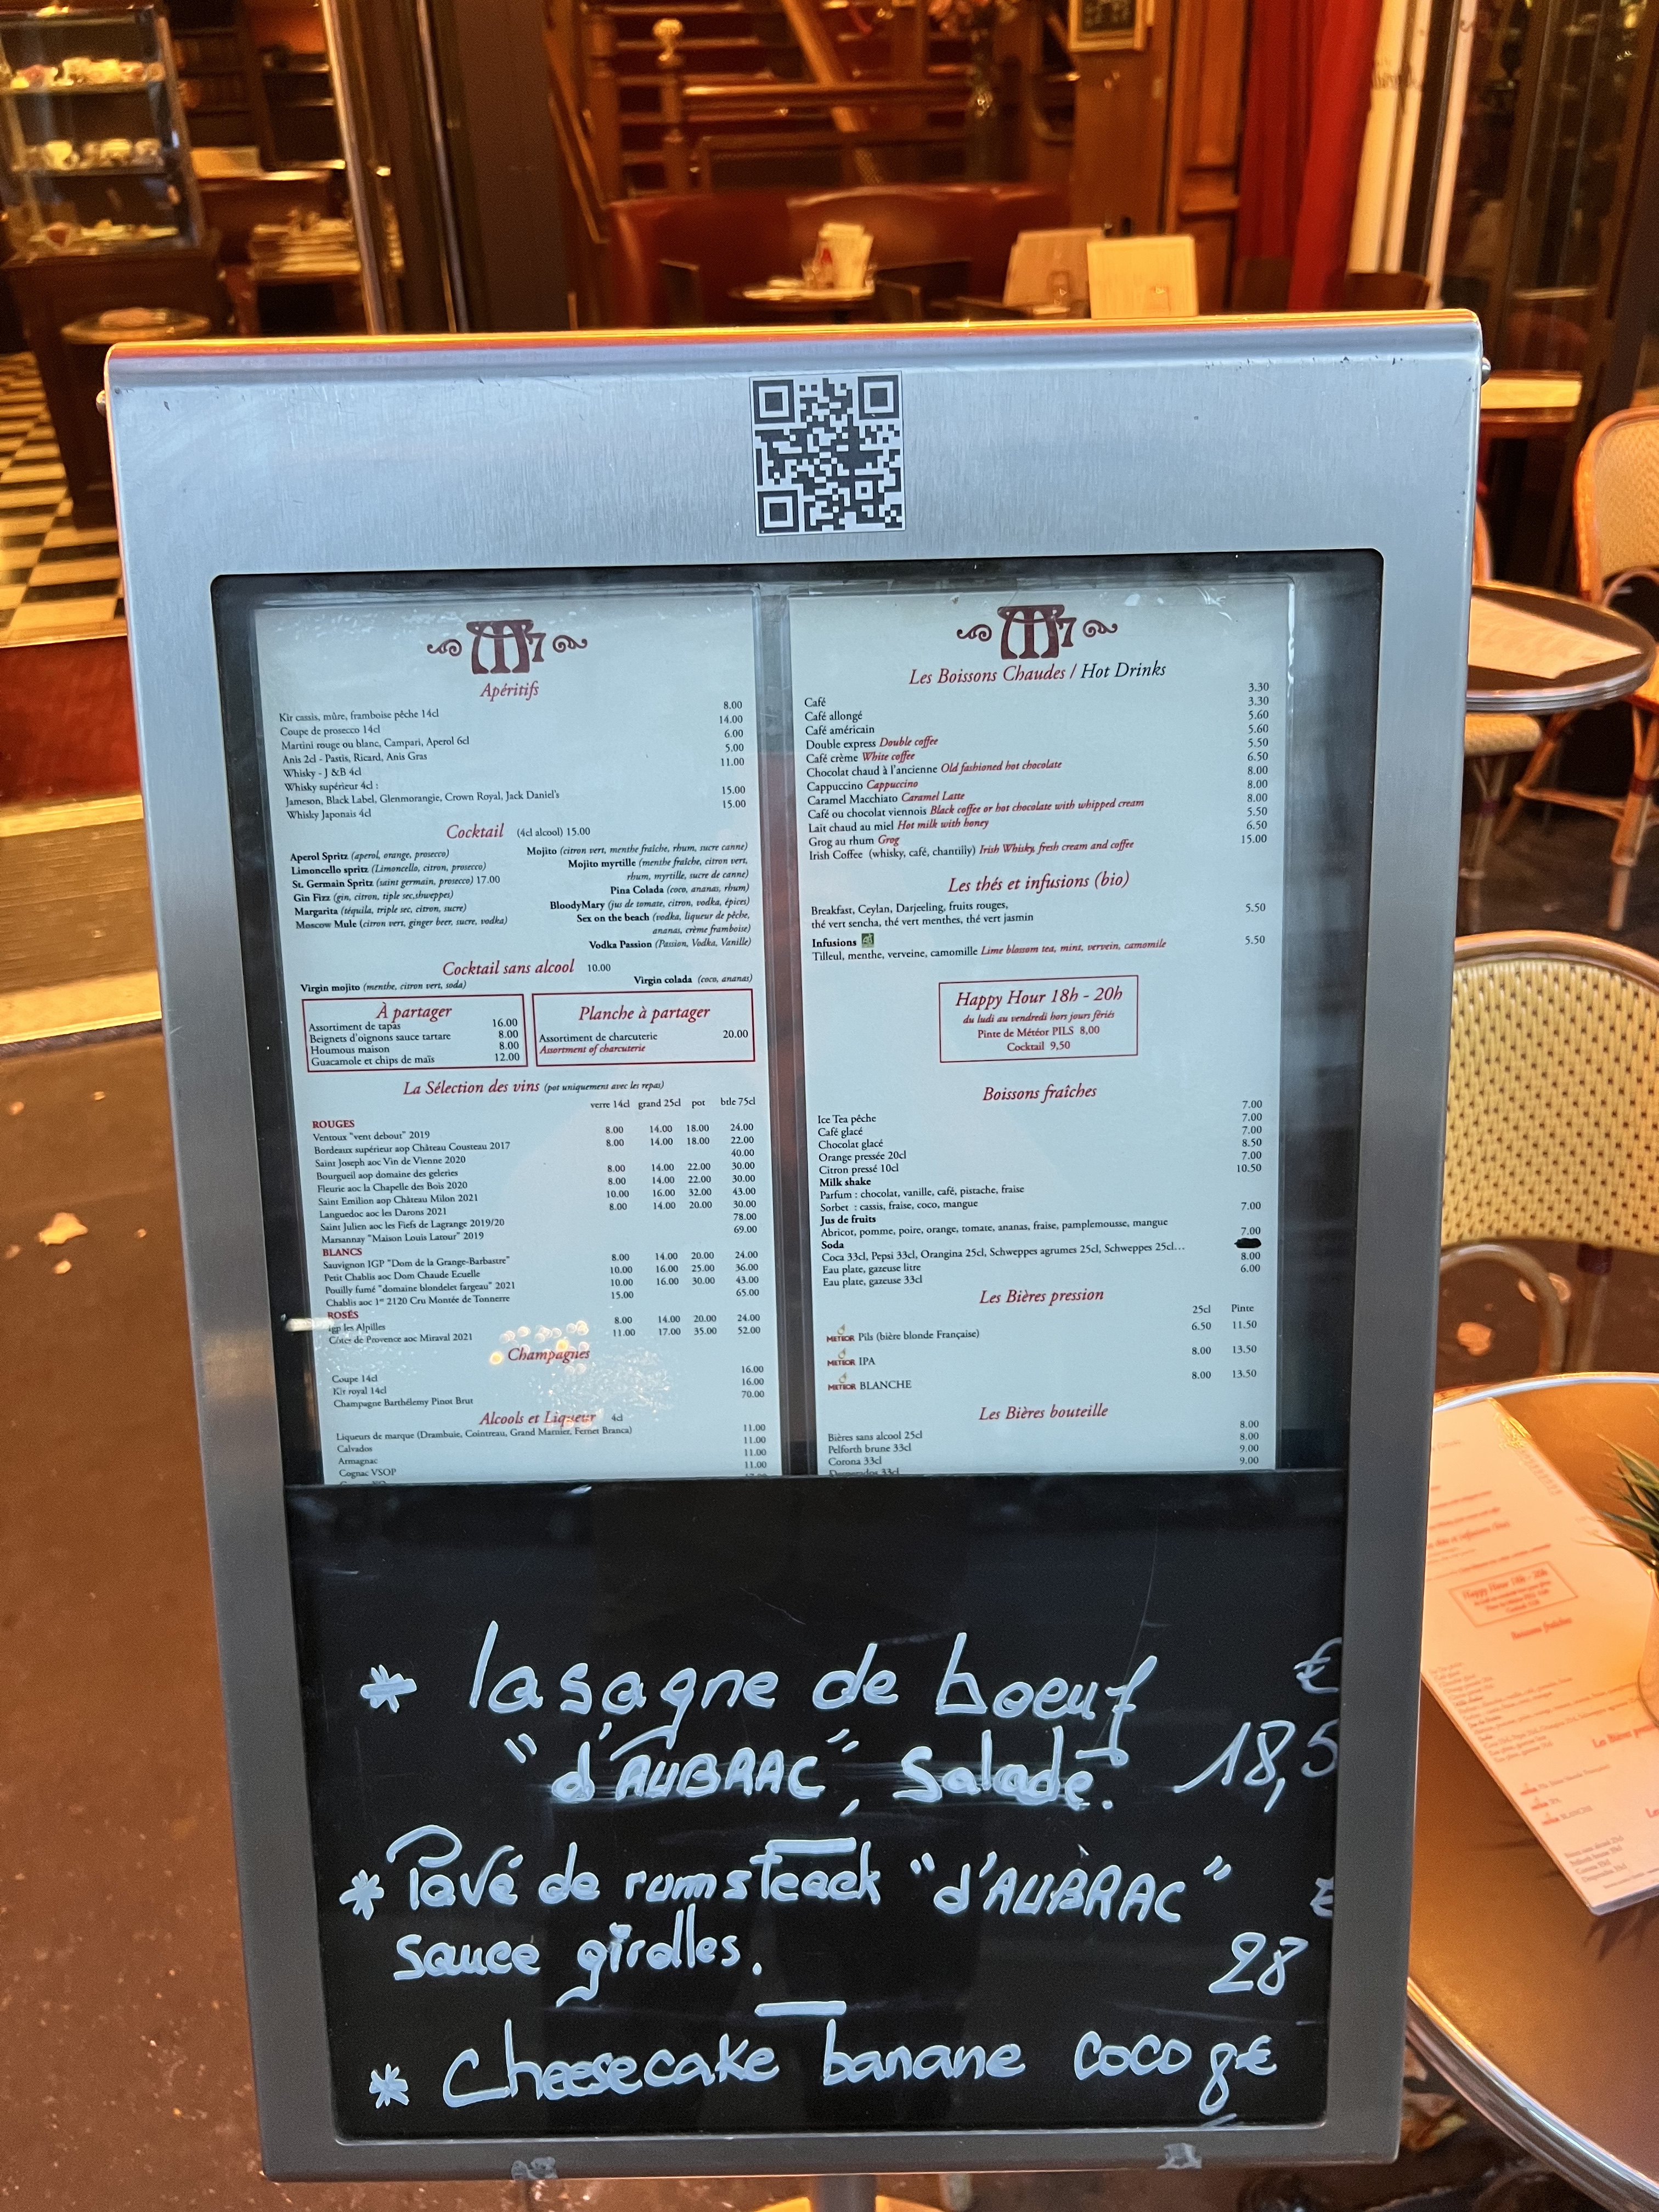 M7
Apéritifs
Kir cassis, mûre, framboise pêche 14cl 8.00
Coupe de prosecco 14cl 14.00
Martini rouge ou blanc, Campari, Aperol 6cl 6.00
Anis 2cl - Pastis, Ricard, Anis Gras 5.00
Whisky - J &B 4cl 11.00
Whisky supérieur 4cl :
Jameson, Black Label, Glenmorangie, Crown Royal, Jack Daniel's 15.00
Whisky Japonais 4cl 15.00
Cocktail (4cl alcool) 15.00
Aperol Spritz (aperol, orange, prosecco)
Limoncello spritz (Limoncello, citron, prosecco)
St. Germain Spritz (saint germain, prosecco) 17.00
Gin Fizz (gin, citron, tiple sec,shweppes)
Margarita (téquila, triple sec, citron, sucre)
Moscow Mule (citron vert, ginger beer, sucre, vodka)
Mojito (citron vert, menthe fraîche, rhum, sucre canne)
Mojito myrtille (menthe fraîche, citron vert,
rhum, myrtille, sucre de canne)
Pina Colada (coco, ananas, rhum)
BloodyMary (jus de tomate, citron, vodka, épices)
Sex on the beach (vodka, liqueur de pêche,
ananas, crème framboise)
Vodka Passion (Passion, Vodka, Vanille)
Cocktail sans alcool 10.00
Virgin mojito (menthe, citron vert, soda)
Virgin colada (coco, ananas)
À partager
Assortiment de tapas 16.00
Beignets d'oignons sauce tartare 8.00
Houmous maison 8.00
Guacamole et chips de maïs 12.00
Planche à partager
Assortiment de charcuterie 20.00
Assortment of charcuterie
La Sélection des vins (pot uniquement avec les repas)
verre 14cl grand 25cl pot btle 75cl
ROUGES
Ventoux "vent debout" 2019 8.00 14.00 18.00 24.00
Bordeaux supérieur aop Château Cousteau 2017 8.00 14.00 18.00 22.00
Saint Joseph aoc Vin de Vienne 2020 40.00
Bourgueil aop domaine des geleries 8.00 14.00 22.00 30.00
Fleurie aoc la Chapelle des Bois 2020 8.00 14.00 22.00 30.00
Saint Emilion aop Château Milon 2021 10.00 16.00 32.00 43.00
Languedoc aoc les Darons 2021 8.00 14.00 20.00 30.00
Saint Julien aoc les Fiefs de Lagrange 2019/20 78.00
Marsannay "Maison Louis Latour" 2019 69.00
BLANCS
Sauvignon IGP "Dom de la Grange-Barbastre" 8.00 14.00 20.00 24.00
Petit Chablis aoc Dom Chaude Ecuelle 10.00 16.00 25.00 36.00
Pouilly fumé "domaine blondelet fargeau" 2021 10.00 16.00 30.00 43.00
Chablis aoc 1er 2120 Cru Montée de Tonnerre 15.00 65.00
ROSÉS
igp les Alpilles 8.00 14.00 20.00 24.00
Côtes de Provence aoc Miraval 2021 11.00 17.00 35.00 52.00
Champagnes
Coupe 14cl 16.00
Kir royal 14cl 16.00
Champagne Barthélemy Pinot Brut 70.00
Alcools et Liqueur 4cl
Liqueurs de marque (Drambuie, Cointreau, Grand Marnier, Fernet Branca) 11.00
Calvados 11.00
Armagnac 11.00
Cognac VSOP 11.00
M7
Les Boissons Chaudes / Hot Drinks
Café 3.30
Café allongé 3.30
Café américain 5.60
Double express Double coffee 5.60
Café crème White coffee 5.50
Chocolat chaud à l'ancienne Old fashioned hot chocolate 6.50
Cappuccino Cappuccino 8.00
Caramel Macchiato Caramel Latte 8.00
Café ou chocolat viennois Black coffee or hot chocolate with whipped cream 8.00
Lait chaud au miel Hot milk with honey 5.50
Grog au rhum Grog 6.50
Irish Coffee (whisky, café, chantilly) Irish Whisky, fresh cream and coffee 15.00
Les thés et infusions (bio)
Breakfast, Ceylan, Darjeeling, fruits rouges, 5.50
thé vert sencha, thé vert menthes, thé vert jasmin
Infusions
Tilleul, menthe, verveine, camomille Lime blossom tea, mint, vervein, camomile 5.50
Happy Hour 18h - 20h
du ludi au vendredi hors jours fériés
Pinte de Météor PILS 8,00
Cocktail 9,50
Boissons fraîches
Ice Tea pêche 7.00
Café glacé 7.00
Chocolat glacé 7.00
Orange pressée 20cl 8.50
Citron pressé 10cl 7.00
Milk shake 10.50
Parfum : chocolat, vanille, café, pistache, fraise
Sorbet : cassis, fraise, coco, mangue
Jus de fruits 7.00
Abricot, pomme, poire, orange, tomate, ananas, fraise, pamplemousse, mangue
Soda 7.00
Coca 33cl, Pepsi 33cl, Orangina 25cl, Schweppes agrumes 25cl, Schweppes 25cl...
Eau plate, gazeuse litre 8.00
Eau plate, gazeuse 33cl 6.00
Les Bières pression
25cl Pinte
METEOR Pils (bière blonde Française) 6.50 11.50
METEOR IPA 8.00 13.50
METEOR BLANCHE 8.00 13.50
Les Bières bouteille
Bières sans alcool 25cl 8.00
Pelforth brune 33cl 8.00
Corona 33cl 9.00
Desperados 33cl 9.00
* lasagne de boeuf €
"d'AUBRAC", Salade. 18,5
* Pavé de rumsteack "d'AUBRAC" €
sauce girolles. 28
* Cheesecake banane coco 8€
Happy Hour 18h - 20h
Boissons fraîches